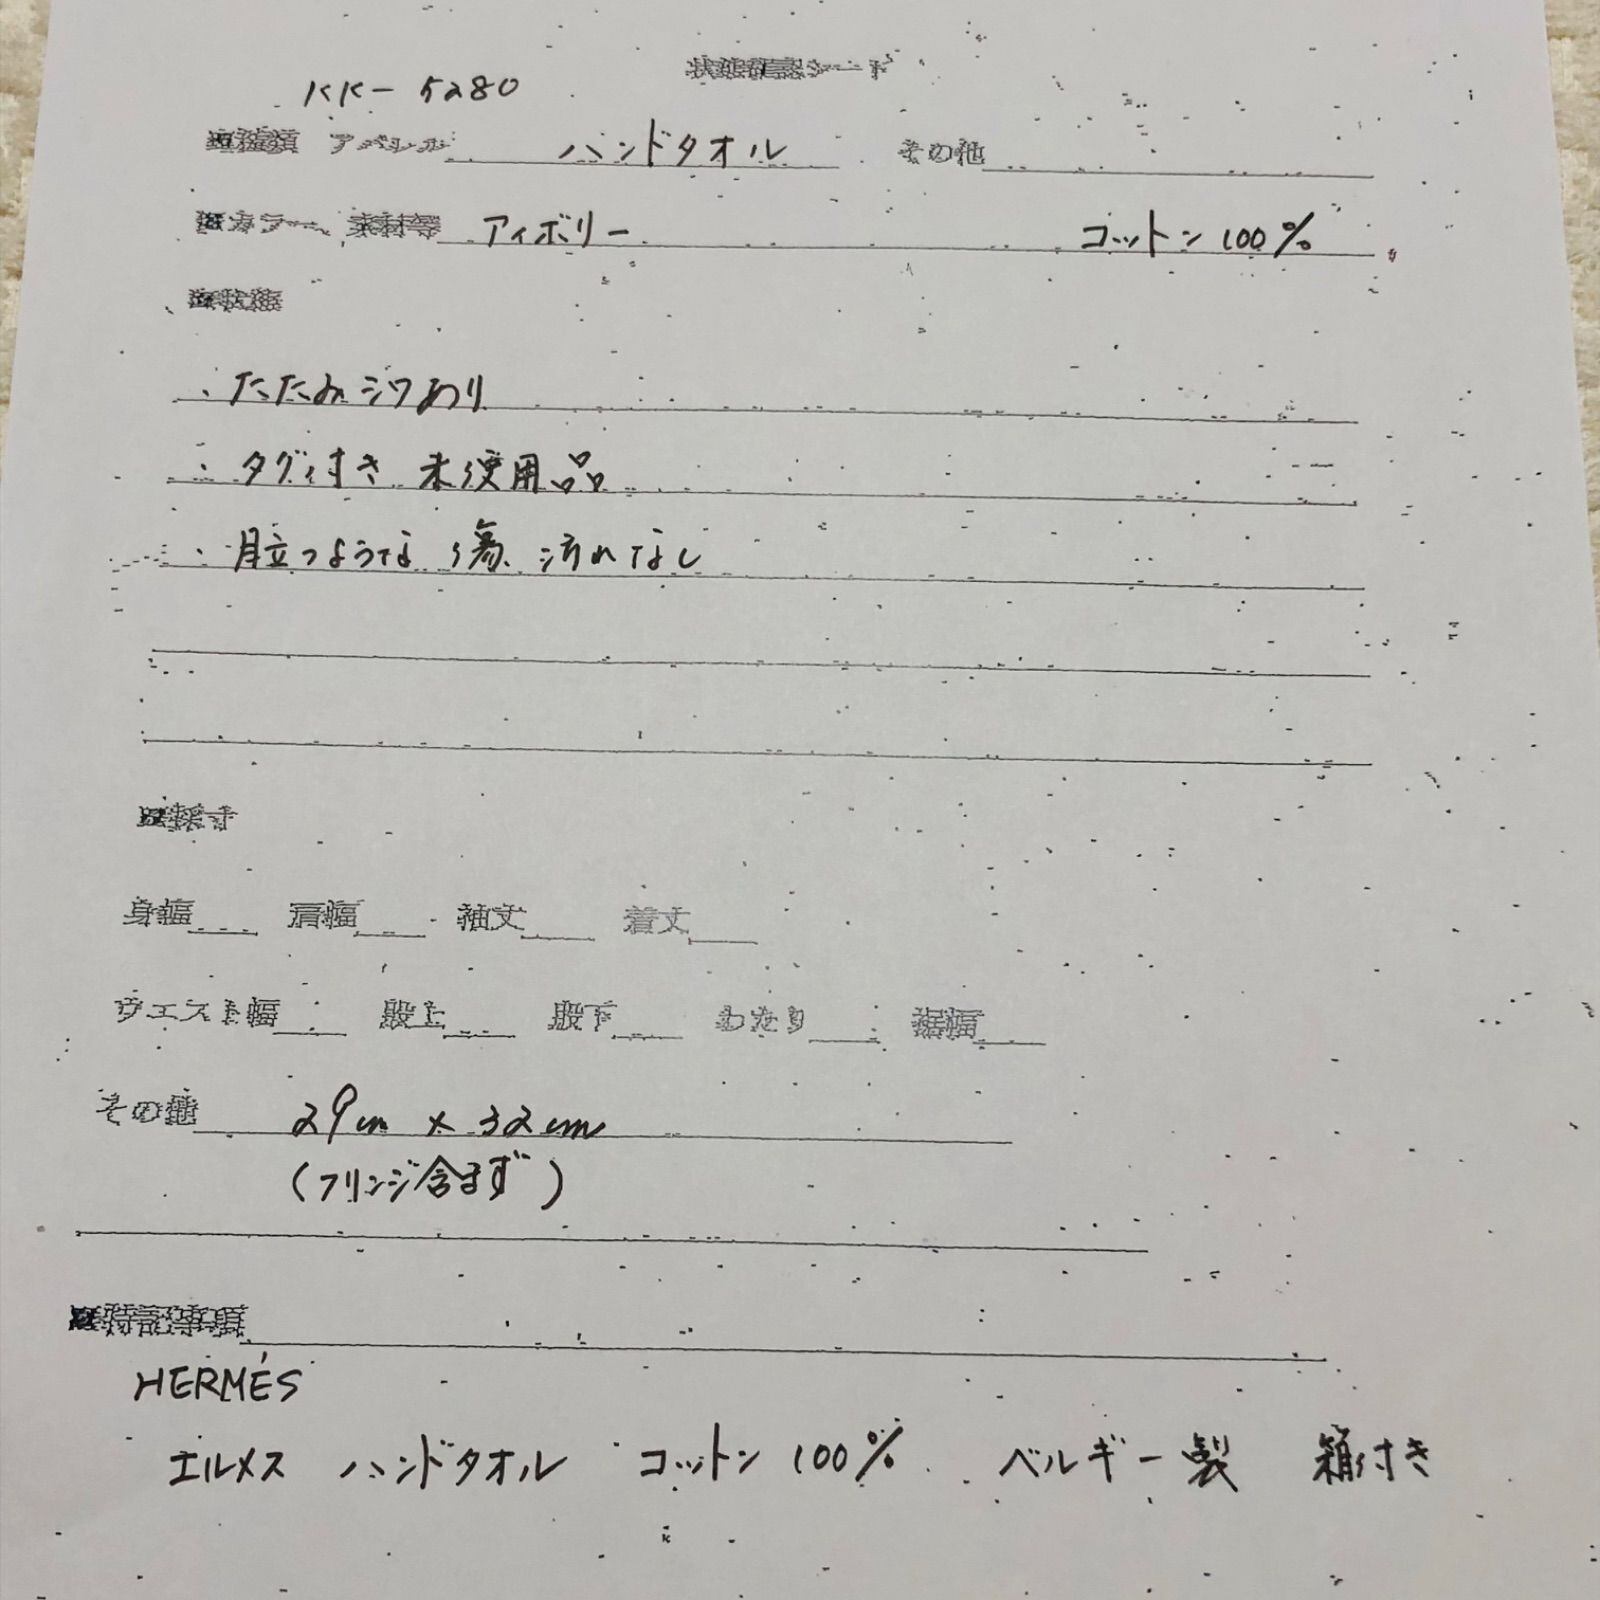 状態確認シート
KK-5280
■種類 アパレル ハンドタオル その他
■カラー、素材等 アイボリー コットン100%
■状態
・たたみシワあり
・タグ付き 未使用品
・目立つような傷、汚れなし
■採寸
身幅 肩幅 袖丈 着丈
ウエスト幅 股上 股下 わたり 裾幅
その他 29cm×32cm
(フリンジ含まず)
■特記事項
HERMÉS
エルメス ハンドタオル コットン100% ベルギー製 箱付き